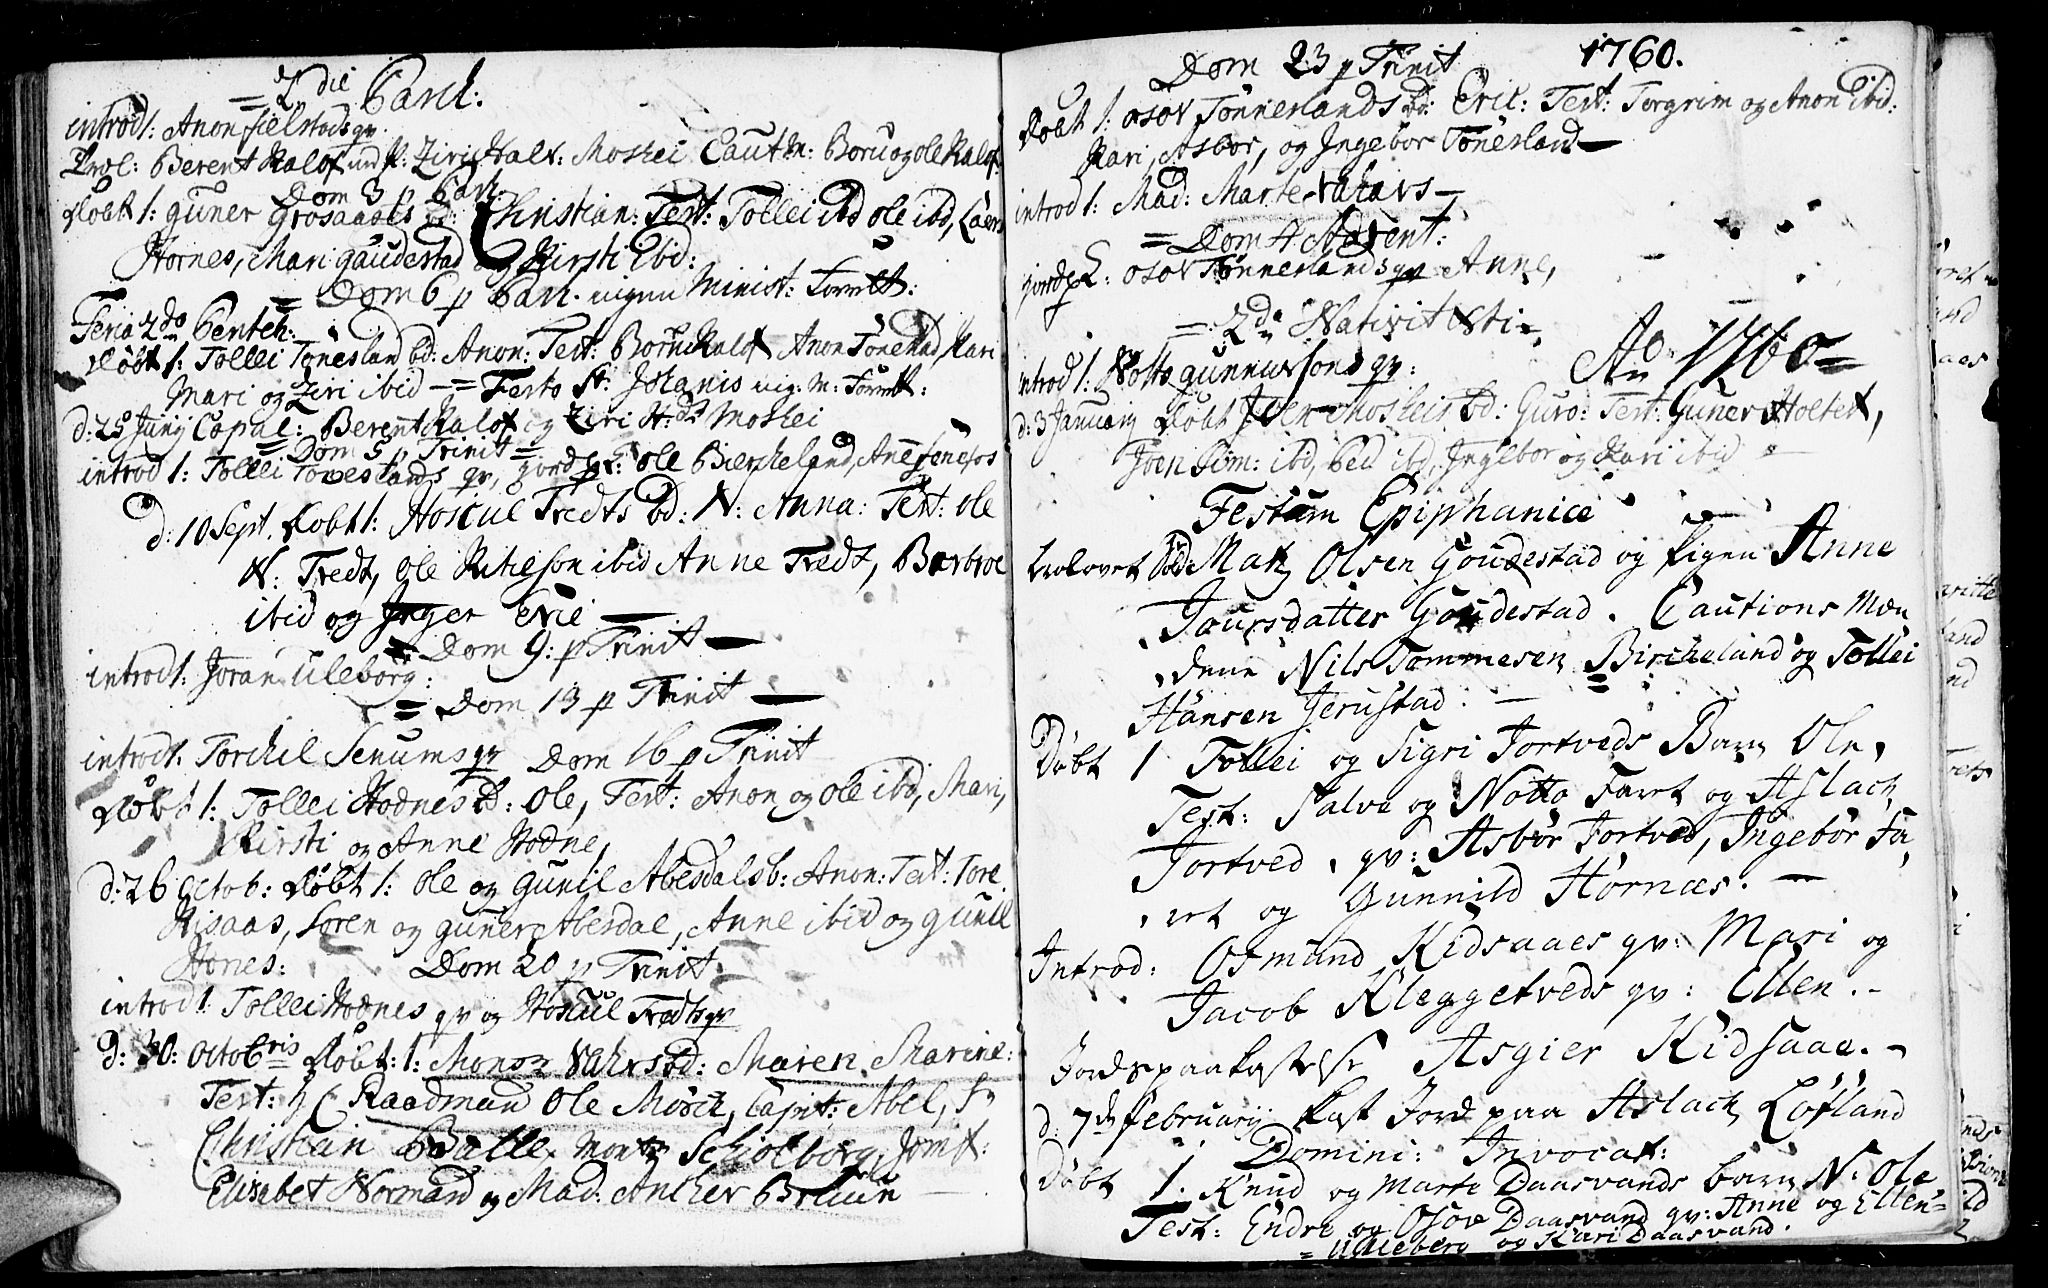 = 2 die Pasch:
introd 1: Anon fielstads qv.
Trol: Berent Kalof P: Ziri Halv: Moshei Caut M: Boru og ole Kalof
Dom 3 p Pasch
døbt 1: guner Grosaases bd: Christian: Test: Tollei ibd ole ibd, Laers
Hornes, Mari gaudestad og Kirsti ibid:
= Dom 6 p Pasc. ingen Minist: Forrett:
Feria 2da Pentek:
døbt 1: Tollei Tonesland bd: Anon: Test: Boru Kalof Anon Tonesland, Kari
Mari og Ziri ibid — = Festo St: Johanis nig: M: Forrett:
d: 25 Junij Copul: Berent Kalof og Ziri H:dr Moshei
= Dom 5 p Trinit =
introd 1: Tollei Toneslands qv, jordp: Ole Bierkeland, Ane
d: 10 Sept. døbt 1: Hoscul Tredts bd: N: Anna: Test: ole
N: Tredt, Ole Kitelson ibid Anne Tredt, Barbroe
ibid og Inger Evie —
= Dom 9: p Trinit —
introd 1: Joran Uleborg:
= Dom 13 p Trinit —
introd 1: Torchil Senums qv Dom 16 p Trinit
døbt 1: Tollei Hodnes B: Ole, Test: Anon og Ole ibd, Mari,
Kirsti og Anne Hodne,
d: 26 Octob: døbt 1: Ole og Gunil Abesdals b: Anon: Test: Tore
Risaas, Soren og guner Abesdal, Anne ibid og gunil
Hones: Dom 20 p Trinit.
introd 1. Tollei Hodnes qv og Hoscul Tredts qv
d: 30: Octobris døbt: 1: Monsr Vahrs bd: Maren Marine:
Test: h Raadmand Ole Mörch, Capit: Abel, Sr
Christian Balle, Monsr Schiolborg, Jomf:
Elisabet Normand og Mad: Ancher Bruun —
Dom 23 p Trinit 1760.
døbt 1: osov Tonnerlands bd: Eric: Test: Torgrim og Anon ibid:
Kari, Asbor, og Ingebor Tonesland —
introd 1: Mad: Marte Vahrs —
= Dom 4 Advent:
jordp: osov Tonnerlands qv Anne,
= 2da Nativitatis,
introd 1: Notto gunnersons qv: Ao 1760 =
d: 3 January døbt Joen Mosheis bd: Guro: Test: Guner Holtet,
Joen Sim: ibid, ibd, Ingebor og Kari ibid =
Festum Epiphaniæ
trolovet Matz Olsen Goudestad og Pigen Anne
Joursdatter Goudestad. Cautions Mæn
dene Nils Tommesen Bircheland og Tollei
Hansen Jerustad: —
Døbt 1 Tollei og Sigri Jortveds Barn Ole,
Test: Salve og Notto Faret og Aslach
Jortved, qv: Asbör Jortved, Ingebör Fa,
,ret og Gunnild Hornæs. —
Introd: Osmund Kidsaaes qv: Mari og
Jacob Kleggetveds qv: Ellen. -
Jordspaakastelse Asgier Kidsaae. -
d: 7de february kast Jord paa Aslach Løfland
Domini: Invocat:
Døbt 1. Knud og Marte Daasvands barn N: Ole
Test: Endre og Osove Daasvand qv: Anne og Ellen
= Ulleberg og Kari Daasvand.